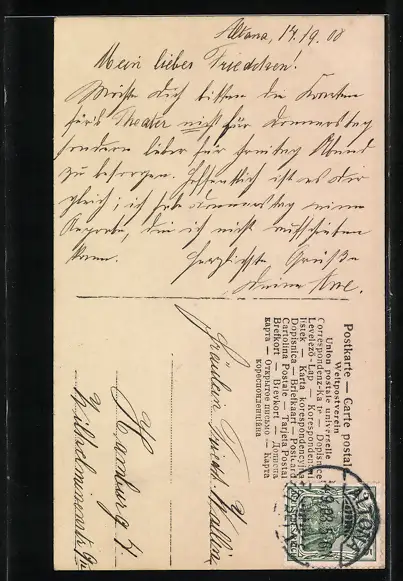 Altona, 14.19.08
Mein liebes Friedchen!
Möchte dich bitten die Karten
für's Theater nicht für Donnerstag
sondern lieber für Freitag Abend
zu besorgen. Hoffentlich ist es dir
gleich; ich habe Donnerstag meine
die ich nicht aufschieben
kann. Herzlichste Grüße
Deine
Postkarte — Carte postale
Weltpostverein
Union postale universelle
Correspondenz-Karte — Dopisnice
Levelező-Lap — Korespondenční
lístek — Karta korespondencyjna
Dopisnica — Briefkaart — Post Card
Cartolina Postale — Tarjeta Postal
Brefkort — Brevkort — Дописна
карта — Открытое письмо — Карта
кореспонденцiйна
Fräulein
Hamburg
ALTONA